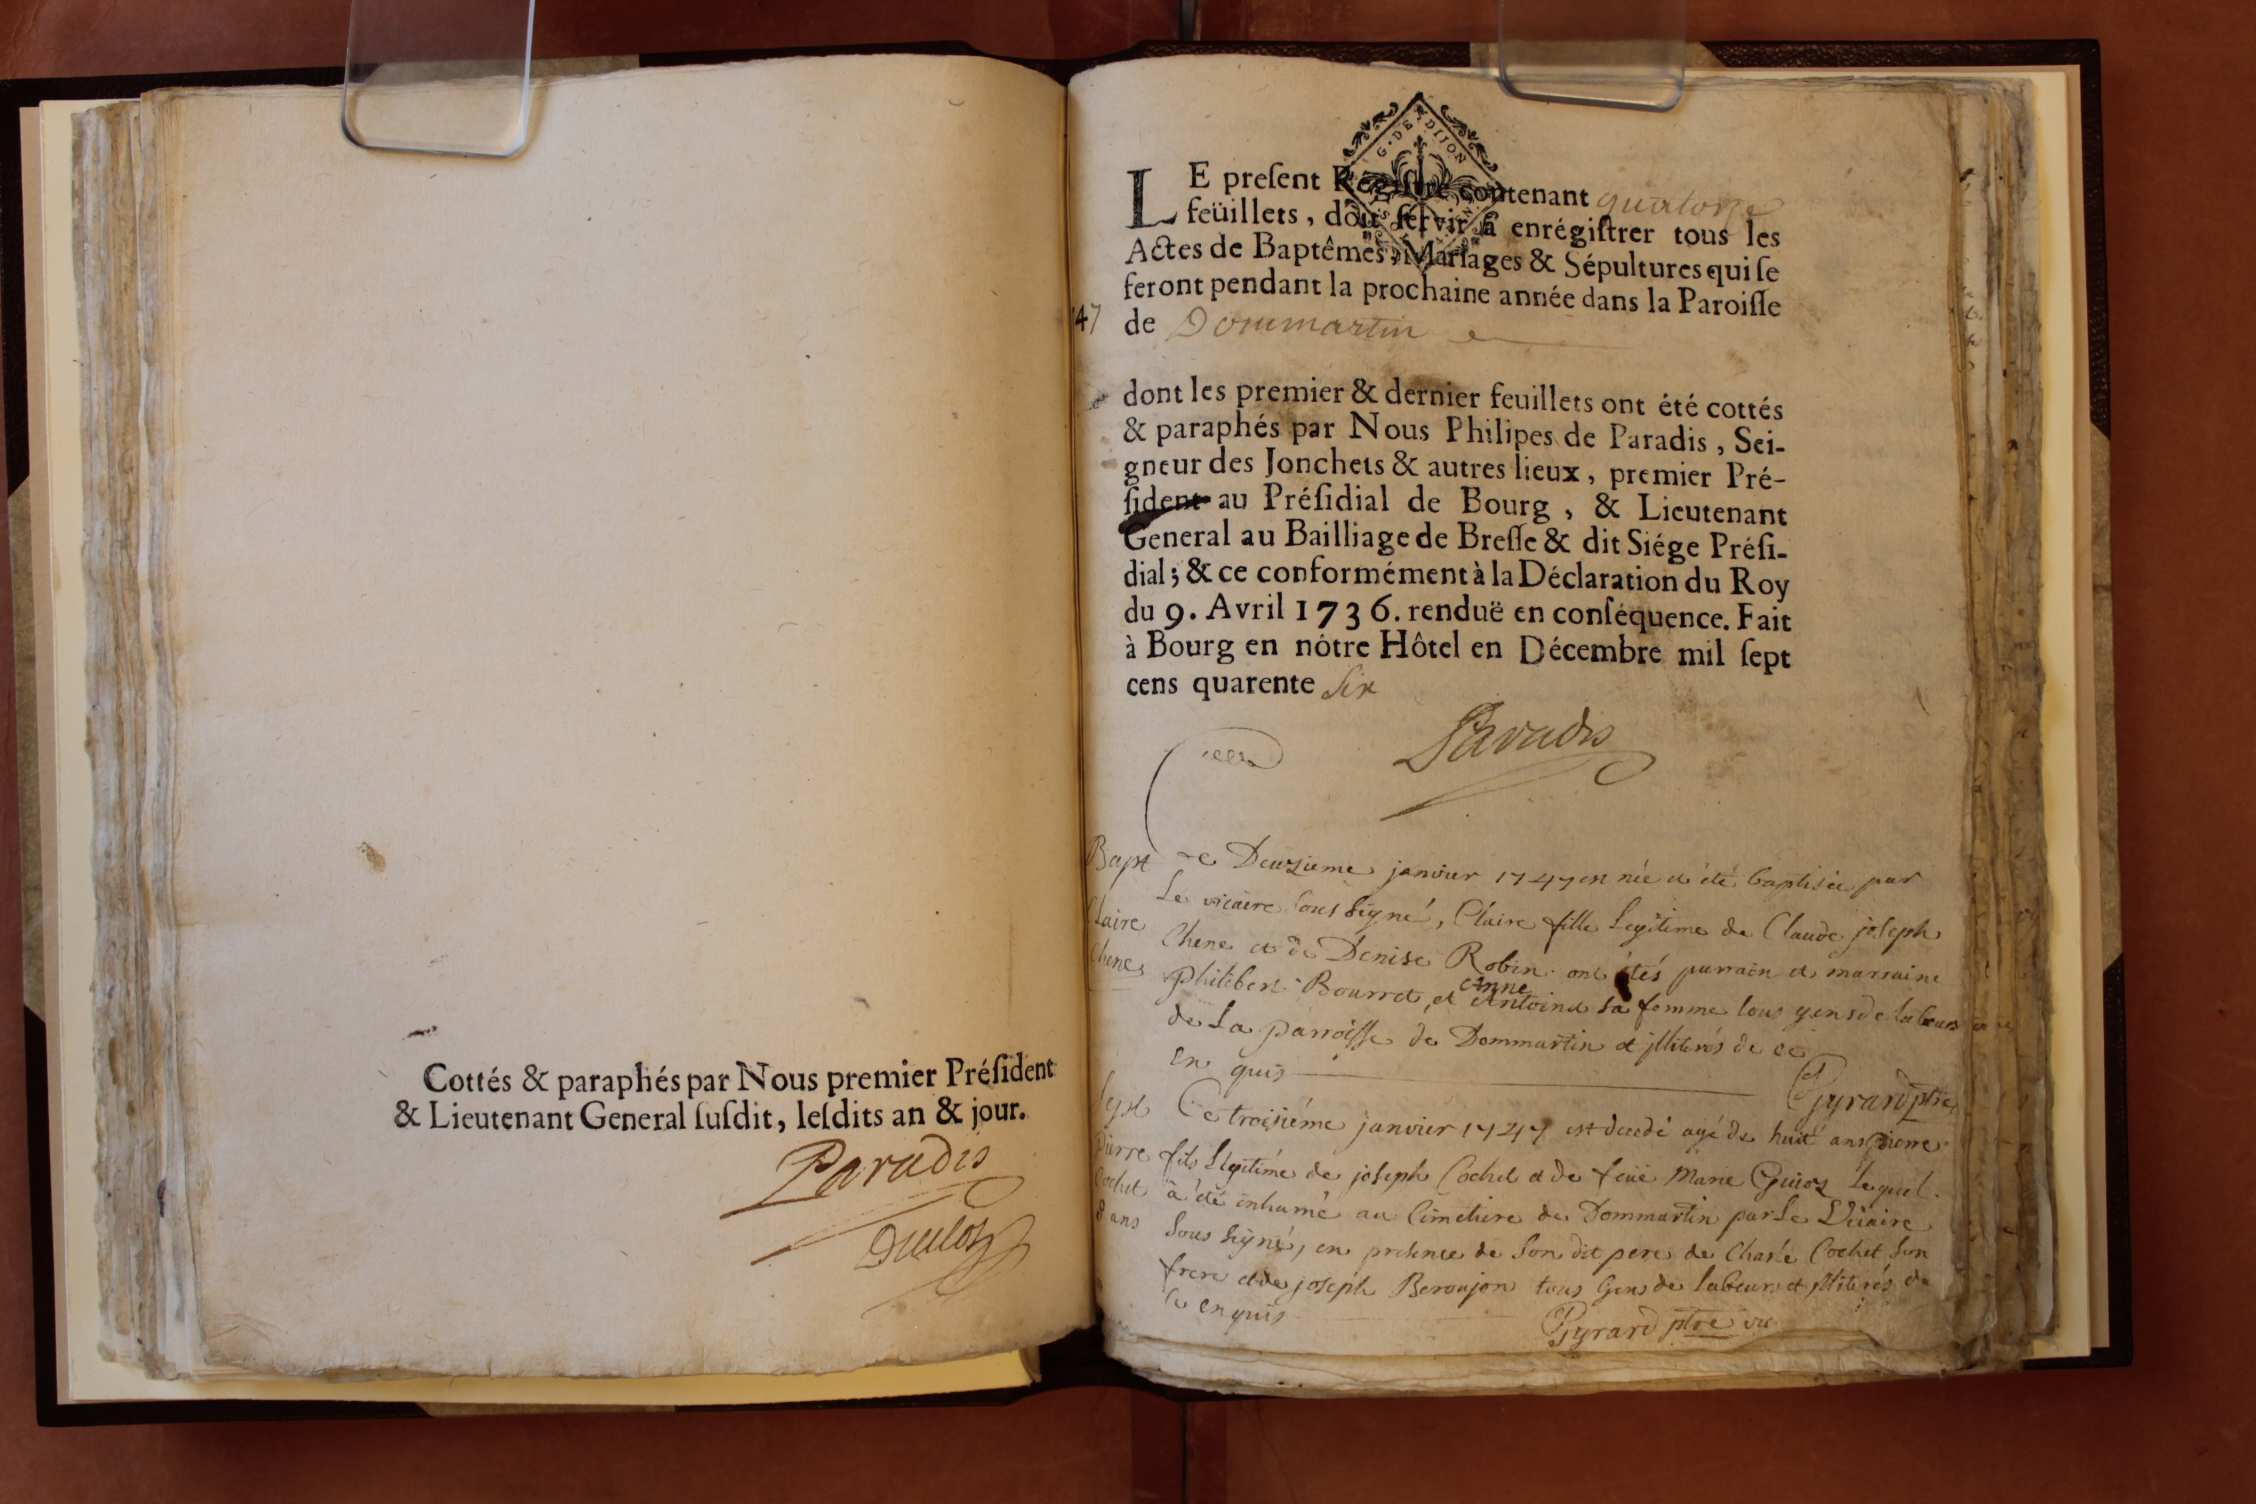 Cottés & paraphés par Nous premier Préſident
& Lieutenant General ſuſdit, leſdits an & jour.
Paradis
G. DE DIJON
LE preſent Régiſtre contenant quatorze
feüillets, doit ſervir à enrégiſtrer tous les
Actes de Baptêmes, Mariages & Sépultures qui ſe
feront pendant la prochaine année dans la Paroiſſe
47
de Dommartin
dont les premier & dernier feuillets ont été cottés
& paraphés par Nous Philipes de Paradis, Sei-
gneur des Jonchets & autres lieux, premier Pré-
ſident au Préſidial de Bourg, & Lieutenant
General au Bailliage de Breſſe & dit Siége Préſi-
dial; & ce conformément à la Déclaration du Roy
du 9. Avril 1736. renduë en conſéquence. Fait
à Bourg en nôtre Hôtel en Décembre mil ſept
cens quarente Six
Paradis
Bapt
Claire
Chene
Ce Deuzieme janvier 1747 est née et été baptisée par
Le vicaire sous signé, Claire fille Legitime de Claude joseph
Chene et de Denise Robin ont étés parrain et marraine
philibert Bourret, et Anne Antoinet sa femme tous gens de labeurs
de La parroisse de Dommartin et illiterés de ce
en quis
Gyrard ptre
Sept
Pierre
Cochet
8 ans
Ce troisiéme janvier 1747 est decedé agé de huit ans Pierre
fils Legitime de joseph Cochet et de feüe Marie Guioz Lequel
a été inhumé au Cimetiere de Dommartin par Le Vicaire
Sous signé, en presence de Son dit pere de Charle Cochet son
frere et de joseph Beroujon tous Gens de labeur et illiterés de
ce enquis
Gyrard ptre vic